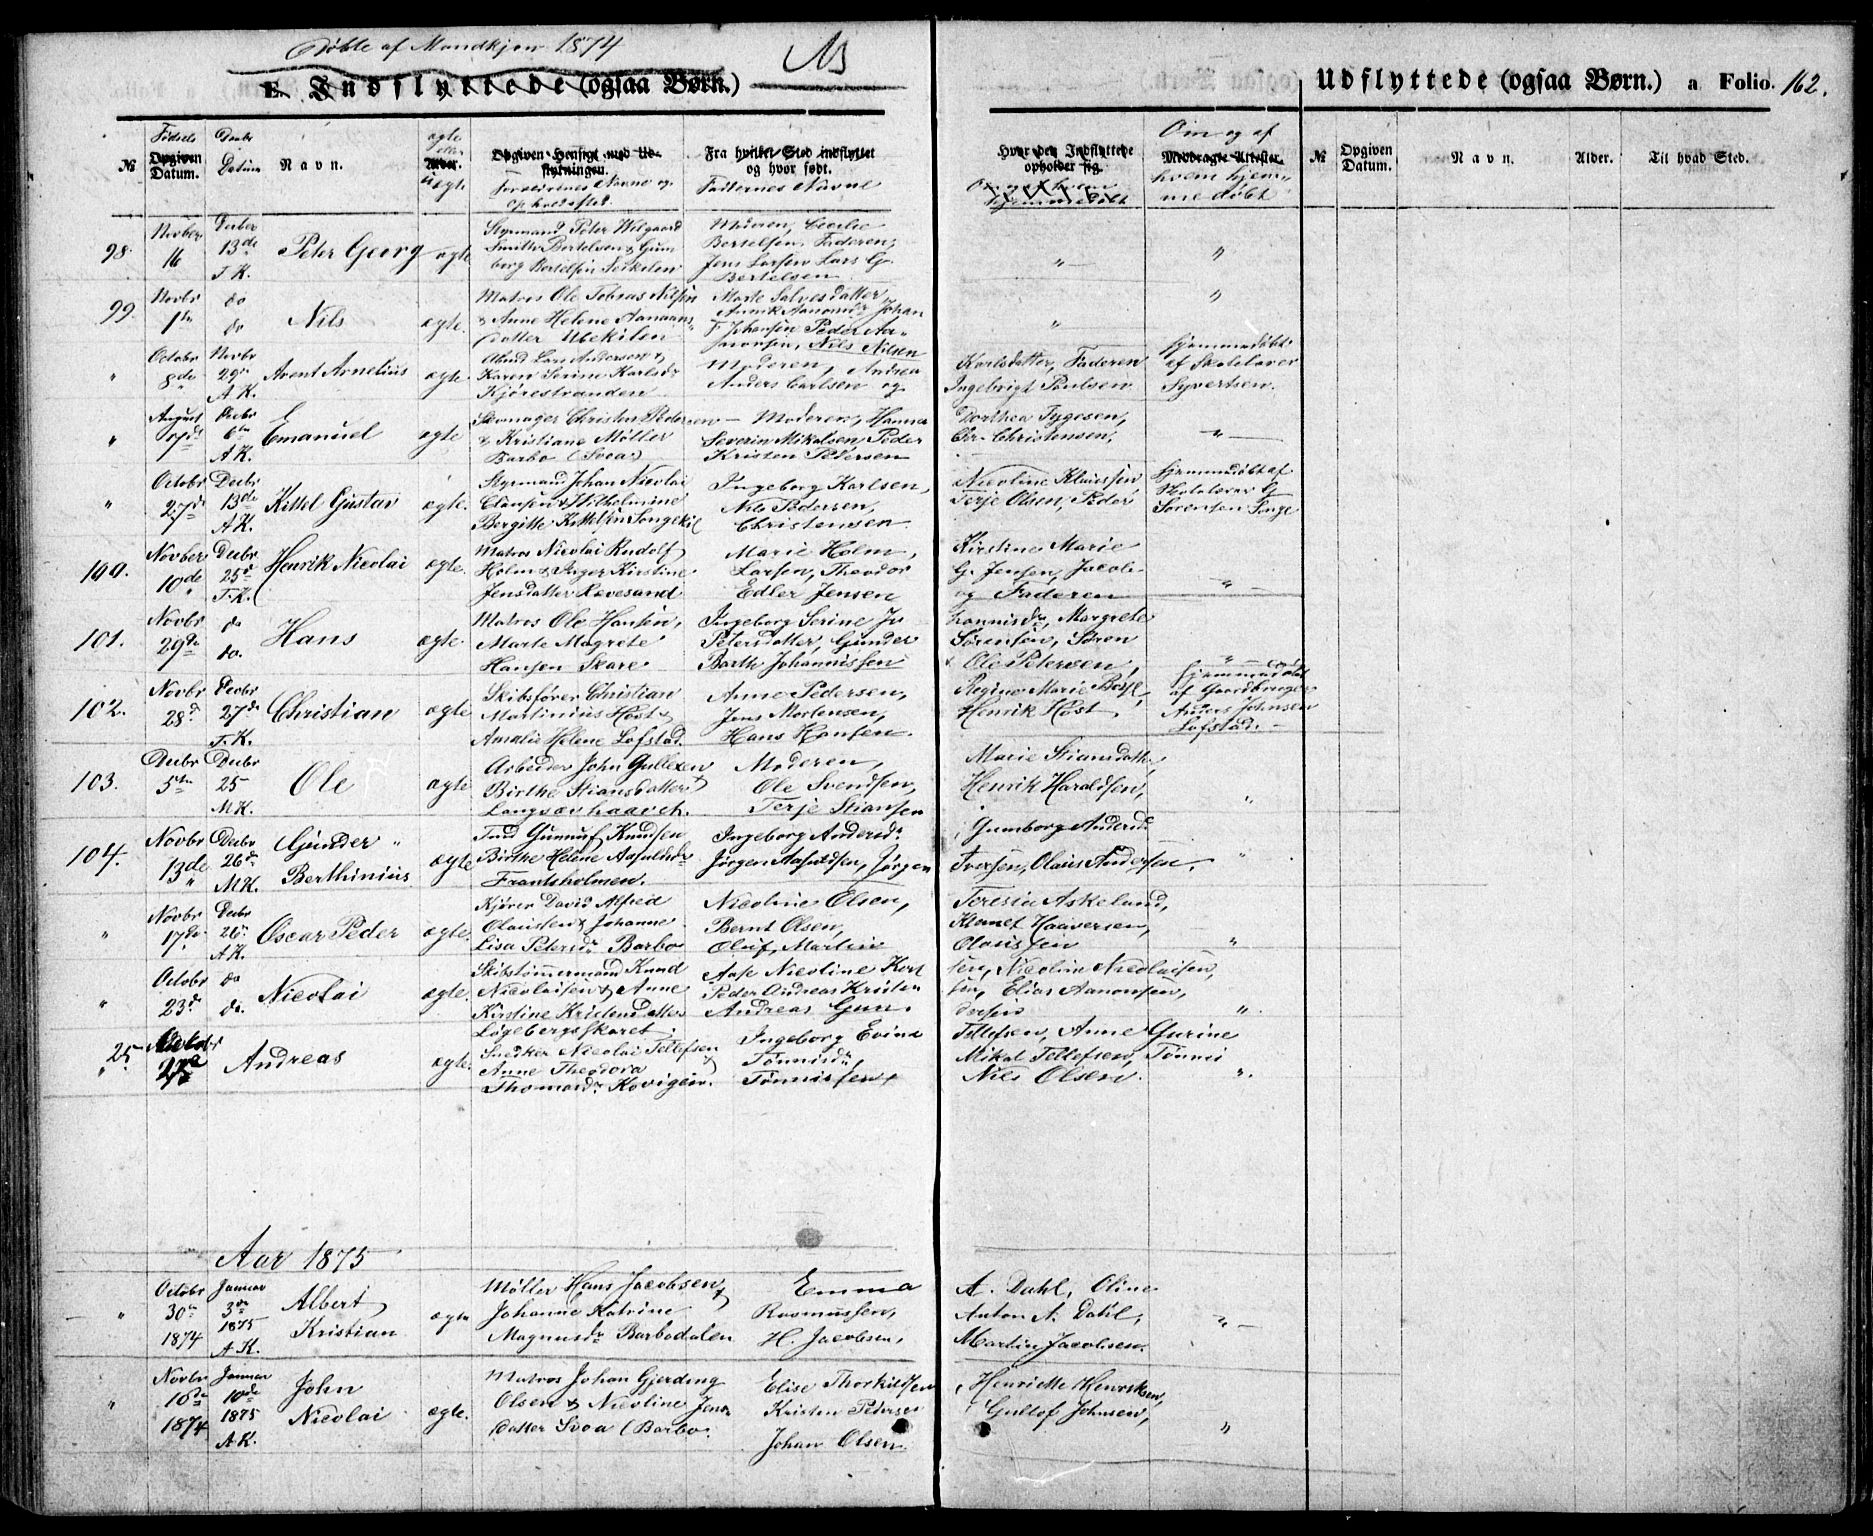 Døbte af Mandkjøn 1874
E. Indflyttede (ogsaa Børn.)
Udflyttede (ogsaa Børn.) a Folio. 162.
№ Fødsels Opgiven Datum. Daabs Datum Navn. ægte eller uægte Alder. Opgiven Hensigt med Udflytningen. Forældrenes Navne og opholdssted. Fra hvilket Sted indflyttet og hvor født. Faddernes Navne
Hvor den Indflyttede opholder sig. Om og af hvem hjemmedøbt Medbragte Attester. № Opgiven Datum. Navn. Alder. Til hvad Sted.
98. Novber 16 Decber 13de T.K. Peter Georg ægte
Styrmand Peter Wilgaard
Smith Bertelsen & Gum
borg Bertelsen
Moderen, Cecilie
Bertelsen, Faderen,
Jens Larsen Lars G.
Bertelsen
99 Novbr 1ste do do Nils ægte.
Matros Ole Tobias Nilsen
& Anne Helene Aanaans
datter Ubekilen
Marte Salvesdatter,
Annik Aanonsdr Johan
F Johansen Peder Aa-
nonsen, Nils Nilsen
" Octobr 8de Novbr 29de A.K. Avent Arnelius ægte
Lars Anderson &
Karen Serine Karlsdr
Kjørestranden
Moderen, Andrea
Anders Carlsen og
Karlsdatter, Faderen
Ingebrigt Paulsen
hjemmedøbt
af Skolelærer
Syvertsen.
" August 7de Decbr 6te A.K. Emanuel ægte
Skomager Christen Pedersen
& Kristiane Møller
Barbo (Svoa)
Moderen, Hanna
Severin Mikalsen Peder
Kristen Petersen
Dorthea Tygesen,
Chr. Christensen,
" Octobr 27de Decbr 13de A.K. Kittel Gustav ægte.
Styrmand Johan Nicolai
Clausen & Wilhelmine
Bergitte Kittelsen Songekil
Ingeborg Karlsen,
Nils Pedersen,
Christensen
Nicoline Klausen
Terje Olsen, Peder
hjemmedøbt af
Skolelærer G
Sørensen Songe
100. Novber 10de Decbr 25de T.K. Henrik Nicolai ægte.
Matros Nicolai Rudolf
Holm & Inger Kirstine
Jensdatter Revesand
Marie Holm,
Larsen, Theodor
Edler Jensen
Kirstine Marie
G. Jensen, Jacob
og Faderen
101. Novbr 29de do do. Hans ægte
Matros Ole Hansen,
Marte Magrete
Hansen Skare
Ingeborg Serine Jo
Petersdatter, Gunder
Barth Johannissen
hannisdr, Margrete
Sørensen, Søren
& Ole Petersen,
102. Novbr 28de Decbr 27de T.K. Christian ægte
Skibsfører Christian
Martinius Høst &
Amalie Helene Lofstad
Anne Pedersen,
Jens Mortensen,
Hans Hansen.
Regine Marie Boye,
Henrik Høst,
hjemmedøbt
af Gaardbruger
Anders Johnsen
Lofstad.
103. Decbr 5te Decbr 25 M.K. Ole ægte
Arbeider John Gullexen
& Birthe Stiansdatter
Langsævhaavet.
Moderen,
Ole Svendsen,
Terje Stiansen
Marie Stiansdatter,
Henrik Haraldsen,
104. Novbr 13de Decbr 26de M.K. Gunder Berthinius ægte
Gunnuf Knudsen
Birthe Helene Aasulfsdr
Frantsholmen.
Ingeborg Andersdr
Jørgen Aasulfsen, Jørgen
Gumborg Andersd
Iversen, Olaus Andersen.
" Novbr 17de Decbr 26de A.K. Oscar Peder ægte.
Kjører David Alfred
Olausen & Johanne
Lisa Petersdr Barbo
Nicoline Olsen,
Bernt Olsen,
Oluf Martin
Teresia Askeland,
Klemet Haaversen,
Olaussen
" Octobr 23de do do. Nicolai ægte.
Skibstømmermand Knud
Nicolaisen & Anne
Kirstine Kristensdatter
Løgebergsskaret.
Aase Nicoline Kort
Peder Andreas Kristen
Andreas Gun
sen, Nicoline Nicolaisen,
sen, Elias Aanonsen,
dersen
" 25 Andreas ægte.
Snedker Nicolai Tellefsen
Anne Theodora
Thomasdr Kovigen.
Ingeborg Evine
Tønnisdr,
Tønnissen &
Tellefsen, Anne Gurine
Mikal Tellefsen, Tønnes
Niels Olsen.
Aar 1875
" Octobr 30te 1874 Januar 3de 1875 A.K. Albert Kristian ægte
Møller Hans Jacobsen &
Johanne Katrine
Magnusdr Barbodalen
Emma
Rasmussen,
H. Jacobsen,
A. Dahl, Oline
Anton A. Dahl,
Martin Jacobsen.
" Novbr 16de 1874 Januar 10de 1875 A.K. John Nicolai ægte.
Matros Johan Gjerding
Olsen & Nicoline Jens
datter Svoa (Barbo.
Elise Thorkildsen
Kristen Pedersen
Johan Olsen.
Henriette Henriksen,
Gullof Johnsen,